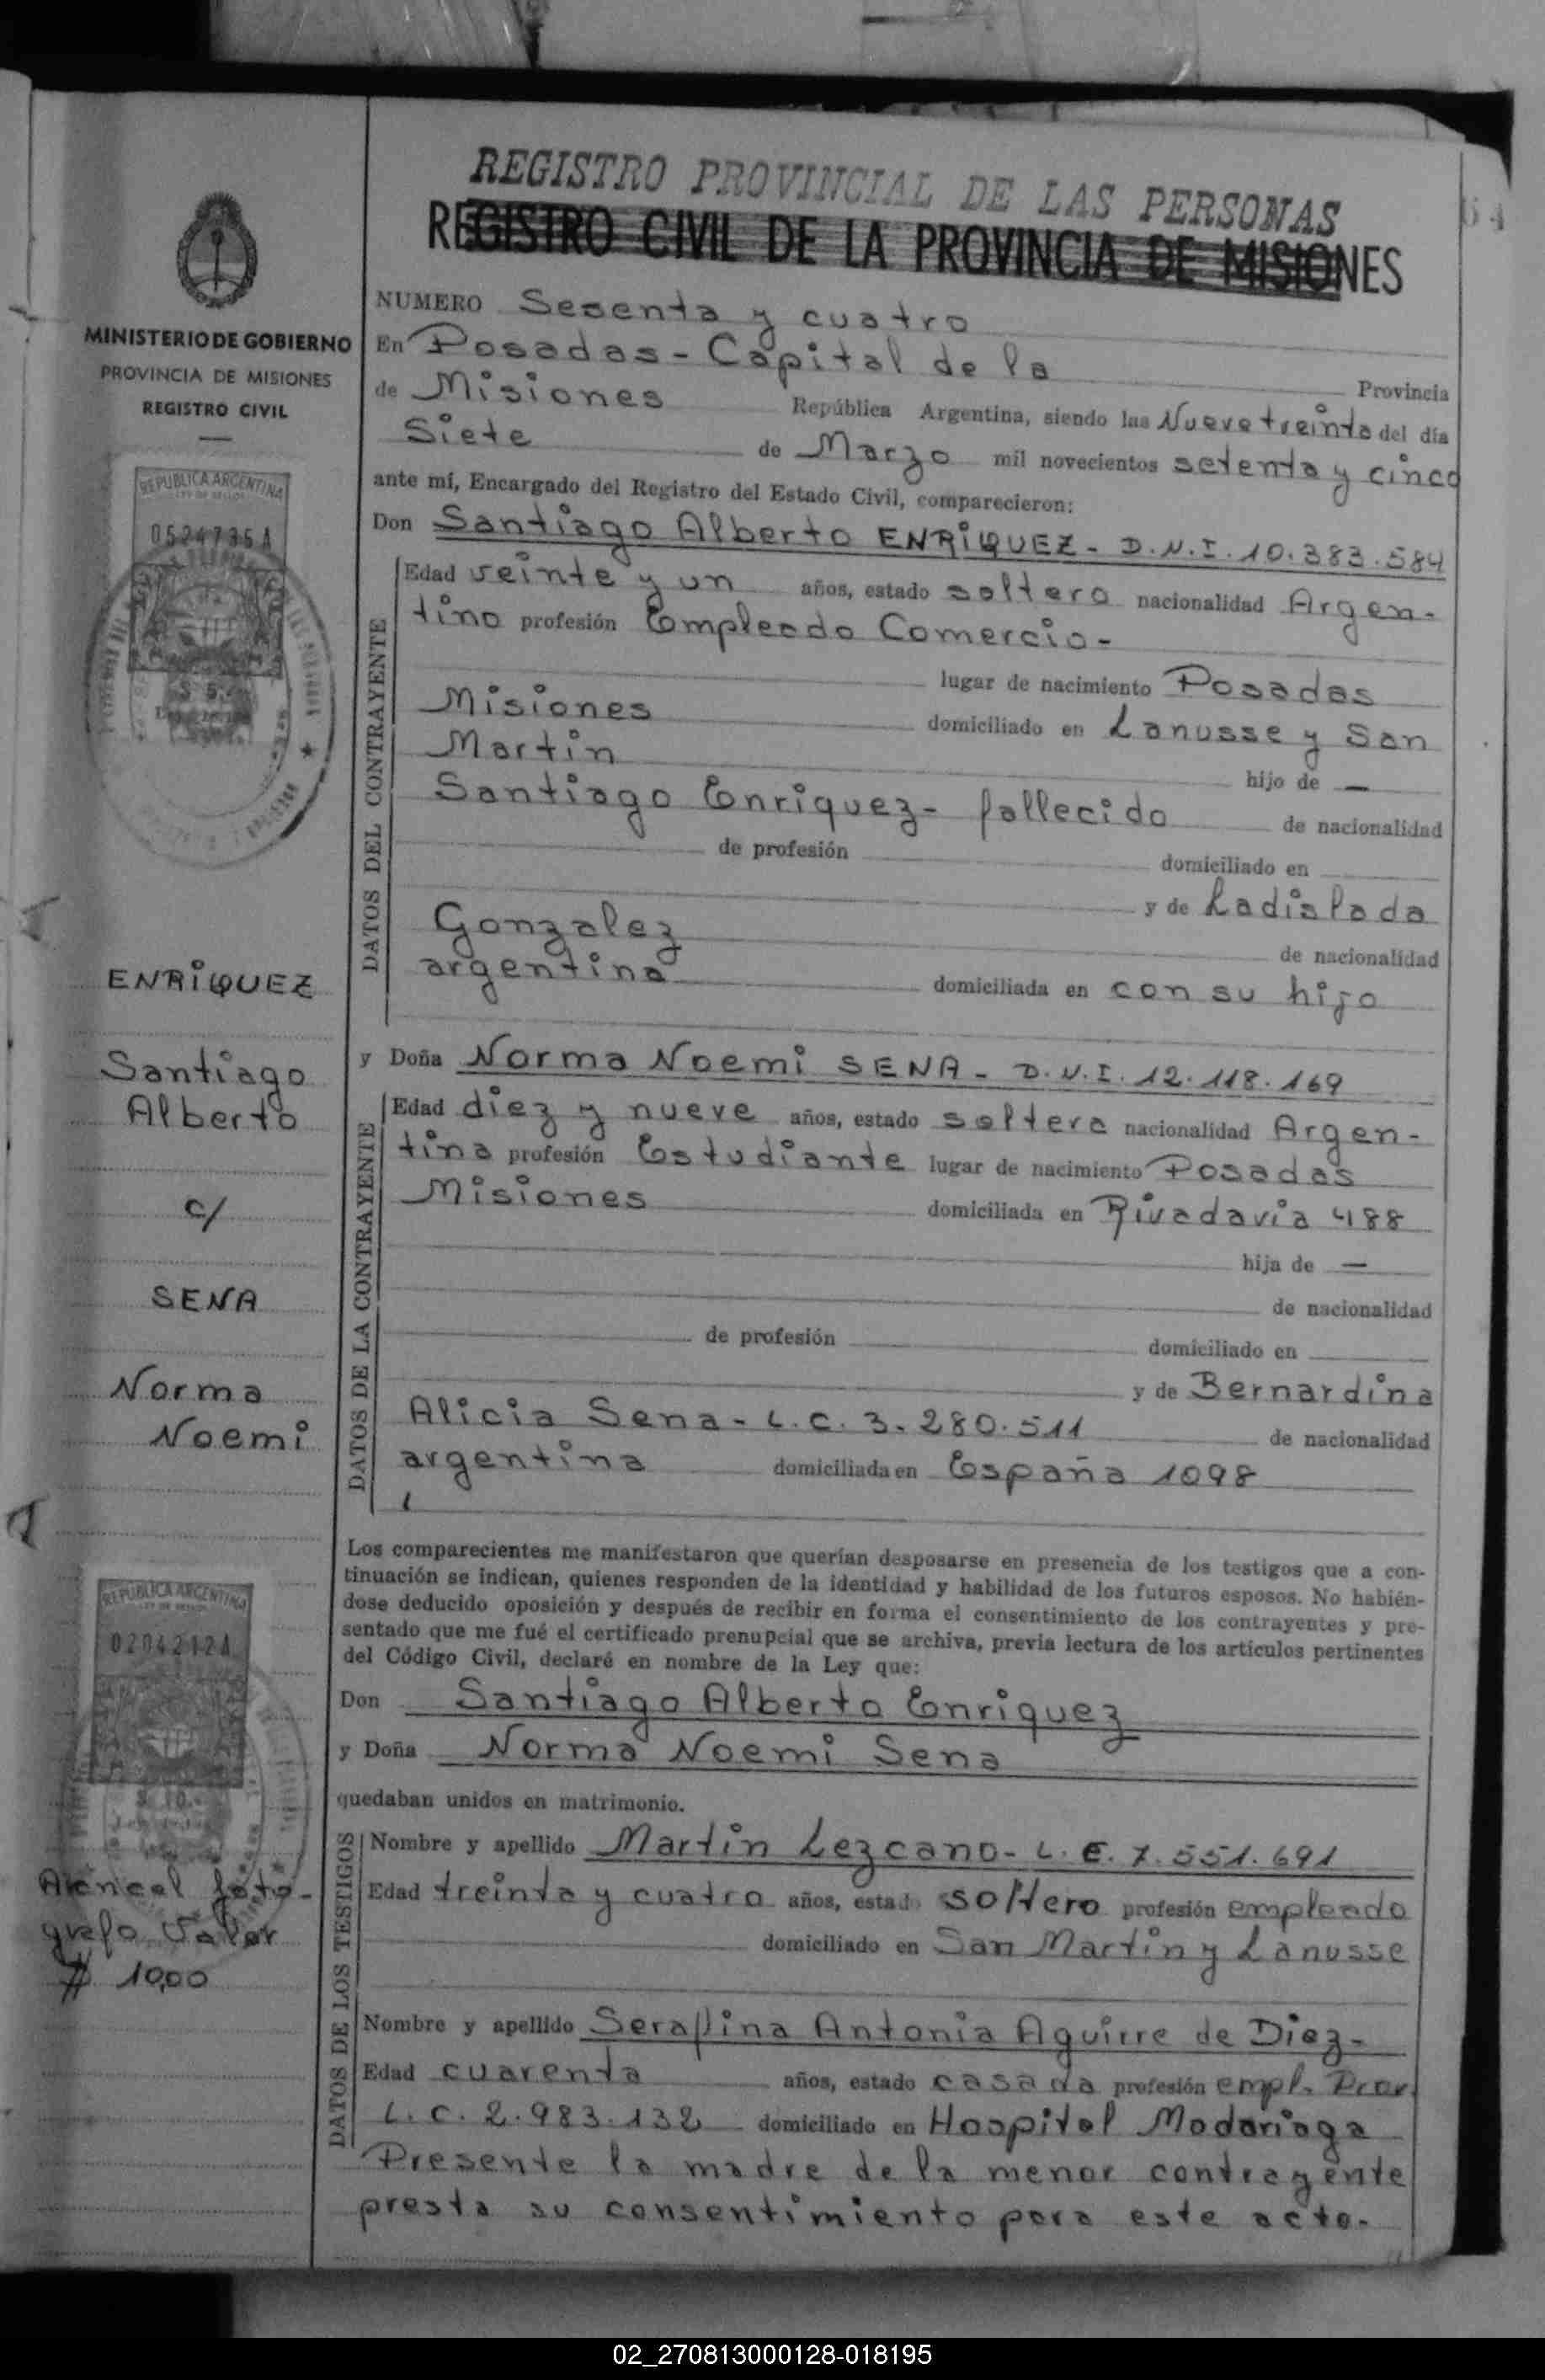 REGISTRO PROVINCIAL DE LAS PERSONAS
REGISTRO CIVIL DE LA PROVINCIA DE MISIONES
64
MINISTERIO DE GOBIERNO
PROVINCIA DE MISIONES
REGISTRO CIVIL
REPUBLICA ARGENTINA
LEY DE SELLOS
0524735A
$ 5.-
ENRIQUEZ
Santiago
Alberto
c/
SENA
Norma
Noemi
REPUBLICA ARGENTINA
0204212A
$ 10.-
Arancel foto-
grafo Valor
$ 10,00
NUMERO Sesenta y cuatro
En Posadas - Capital de la Provincia
de Misiones República Argentina, siendo las Nueve treinta del día
Siete de Marzo mil novecientos setenta y cinco
ante mí, Encargado del Registro del Estado Civil, comparecieron:
Don Santiago Alberto ENRIQUEZ - D.N.I. 10.383.584
DATOS DEL CONTRAYENTE
Edad veinte y un años, estado soltero nacionalidad Argen-
tino profesión Empleado Comercio-
lugar de nacimiento Posadas
Misiones domiciliado en Lanusse y San
Martin hijo de —
Santiago Enriquez - fallecido de nacionalidad
de profesión domiciliado en
y de Ladislada
Gonzalez de nacionalidad
argentina domiciliada en con su hijo
y Doña Norma Noemi SENA - D.N.I. 12.118.169
DATOS DE LA CONTRAYENTE
Edad diez y nueve años, estado soltera nacionalidad Argen-
tina profesión Estudiante lugar de nacimiento Posadas
Misiones domiciliada en Rivadavia 488
hija de —
de nacionalidad
de profesión domiciliado en
y de Bernardina
Alicia Sena - L.C. 3.280.511 de nacionalidad
argentina domiciliada en España 1098
Los comparecientes me manifestaron que querían desposarse en presencia de los testigos que a con-
tinuación se indican, quienes responden de la identidad y habilidad de los futuros esposos. No habién-
dose deducido oposición y después de recibir en forma el consentimiento de los contrayentes y pre-
sentado que me fué el certificado prenupcial que se archiva, previa lectura de los artículos pertinentes
del Código Civil, declaré en nombre de la Ley que:
Don Santiago Alberto Enriquez
y Doña Norma Noemi Sena
quedaban unidos en matrimonio.
DATOS DE LOS TESTIGOS
Nombre y apellido Martin Lezcano - L.E. 7.551.691
Edad treinta y cuatro años, estado soltero profesión empleado
domiciliado en San Martin y Lanusse
Nombre y apellido Serafina Antonia Aguirre de Diez-
Edad cuarenta años, estado casada profesión empl. Prov.
L.C. 2.983.132 domiciliado en Hospital Madariaga
Presente la madre de la menor contrayente
presta su consentimiento para este acto.-
02_270813000128-018195